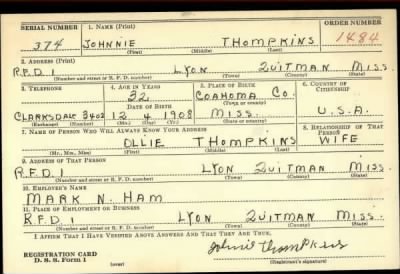 SERIAL NUMBER 1. NAME (Print) ORDER NUMBER
374 JOHNNIE THOMPKINS 1484
(First) (Middle) (Last)
2. ADDRESS (Print)
R.F.D. 1 LYON QUITMAN MISS.
(Number and street or R. F. D. number) (Town) (County) (State)
3. TELEPHONE 4. AGE IN YEARS 5. PLACE OF BIRTH 6. COUNTRY OF CITIZENSHIP
32 COAHOMA CO.
DATE OF BIRTH (Town or county)
CLARKSDALE 3402 12 4 1908 MISS. U.S.A.
(Exchange) (Number) (Mo.) (Day) (Yr.) (State or country)
7. NAME OF PERSON WHO WILL ALWAYS KNOW YOUR ADDRESS 8. RELATIONSHIP OF THAT PERSON
OLLIE THOMPKINS WIFE
(Mr., Mrs., Miss) (First) (Middle) (Last)
9. ADDRESS OF THAT PERSON
R.F.D. 1 LYON QUITMAN MISS.
(Number and street or R. F. D. number) (Town) (County) (State)
10. EMPLOYER'S NAME
MARK N. HAM
11. PLACE OF EMPLOYMENT OR BUSINESS
R.F.D. 1 LYON QUITMAN MISS.
(Number and street or R. F. D. number) (Town) (County) (State)
I AFFIRM THAT I HAVE VERIFIED ABOVE ANSWERS AND THAT THEY ARE TRUE.
REGISTRATION CARD Johnie Thompkins
D. S. S. Form 1 (over) (Registrant's signature)